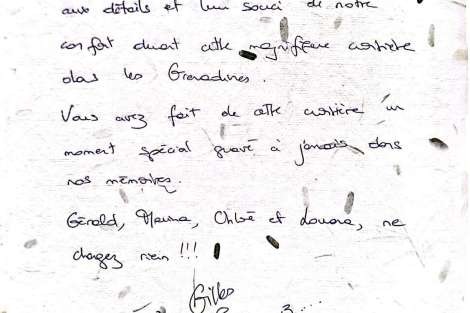 aux détails et leur souci de notre
confort durant cette magnifique croisière
dans les Grenadines.
Vous avez fait de cette croisière un
moment spécial gravé à jamais dans
nos mémoires.
Gérald, Maeva, Chloé et douara, ne
changez rien !!!
Gilles